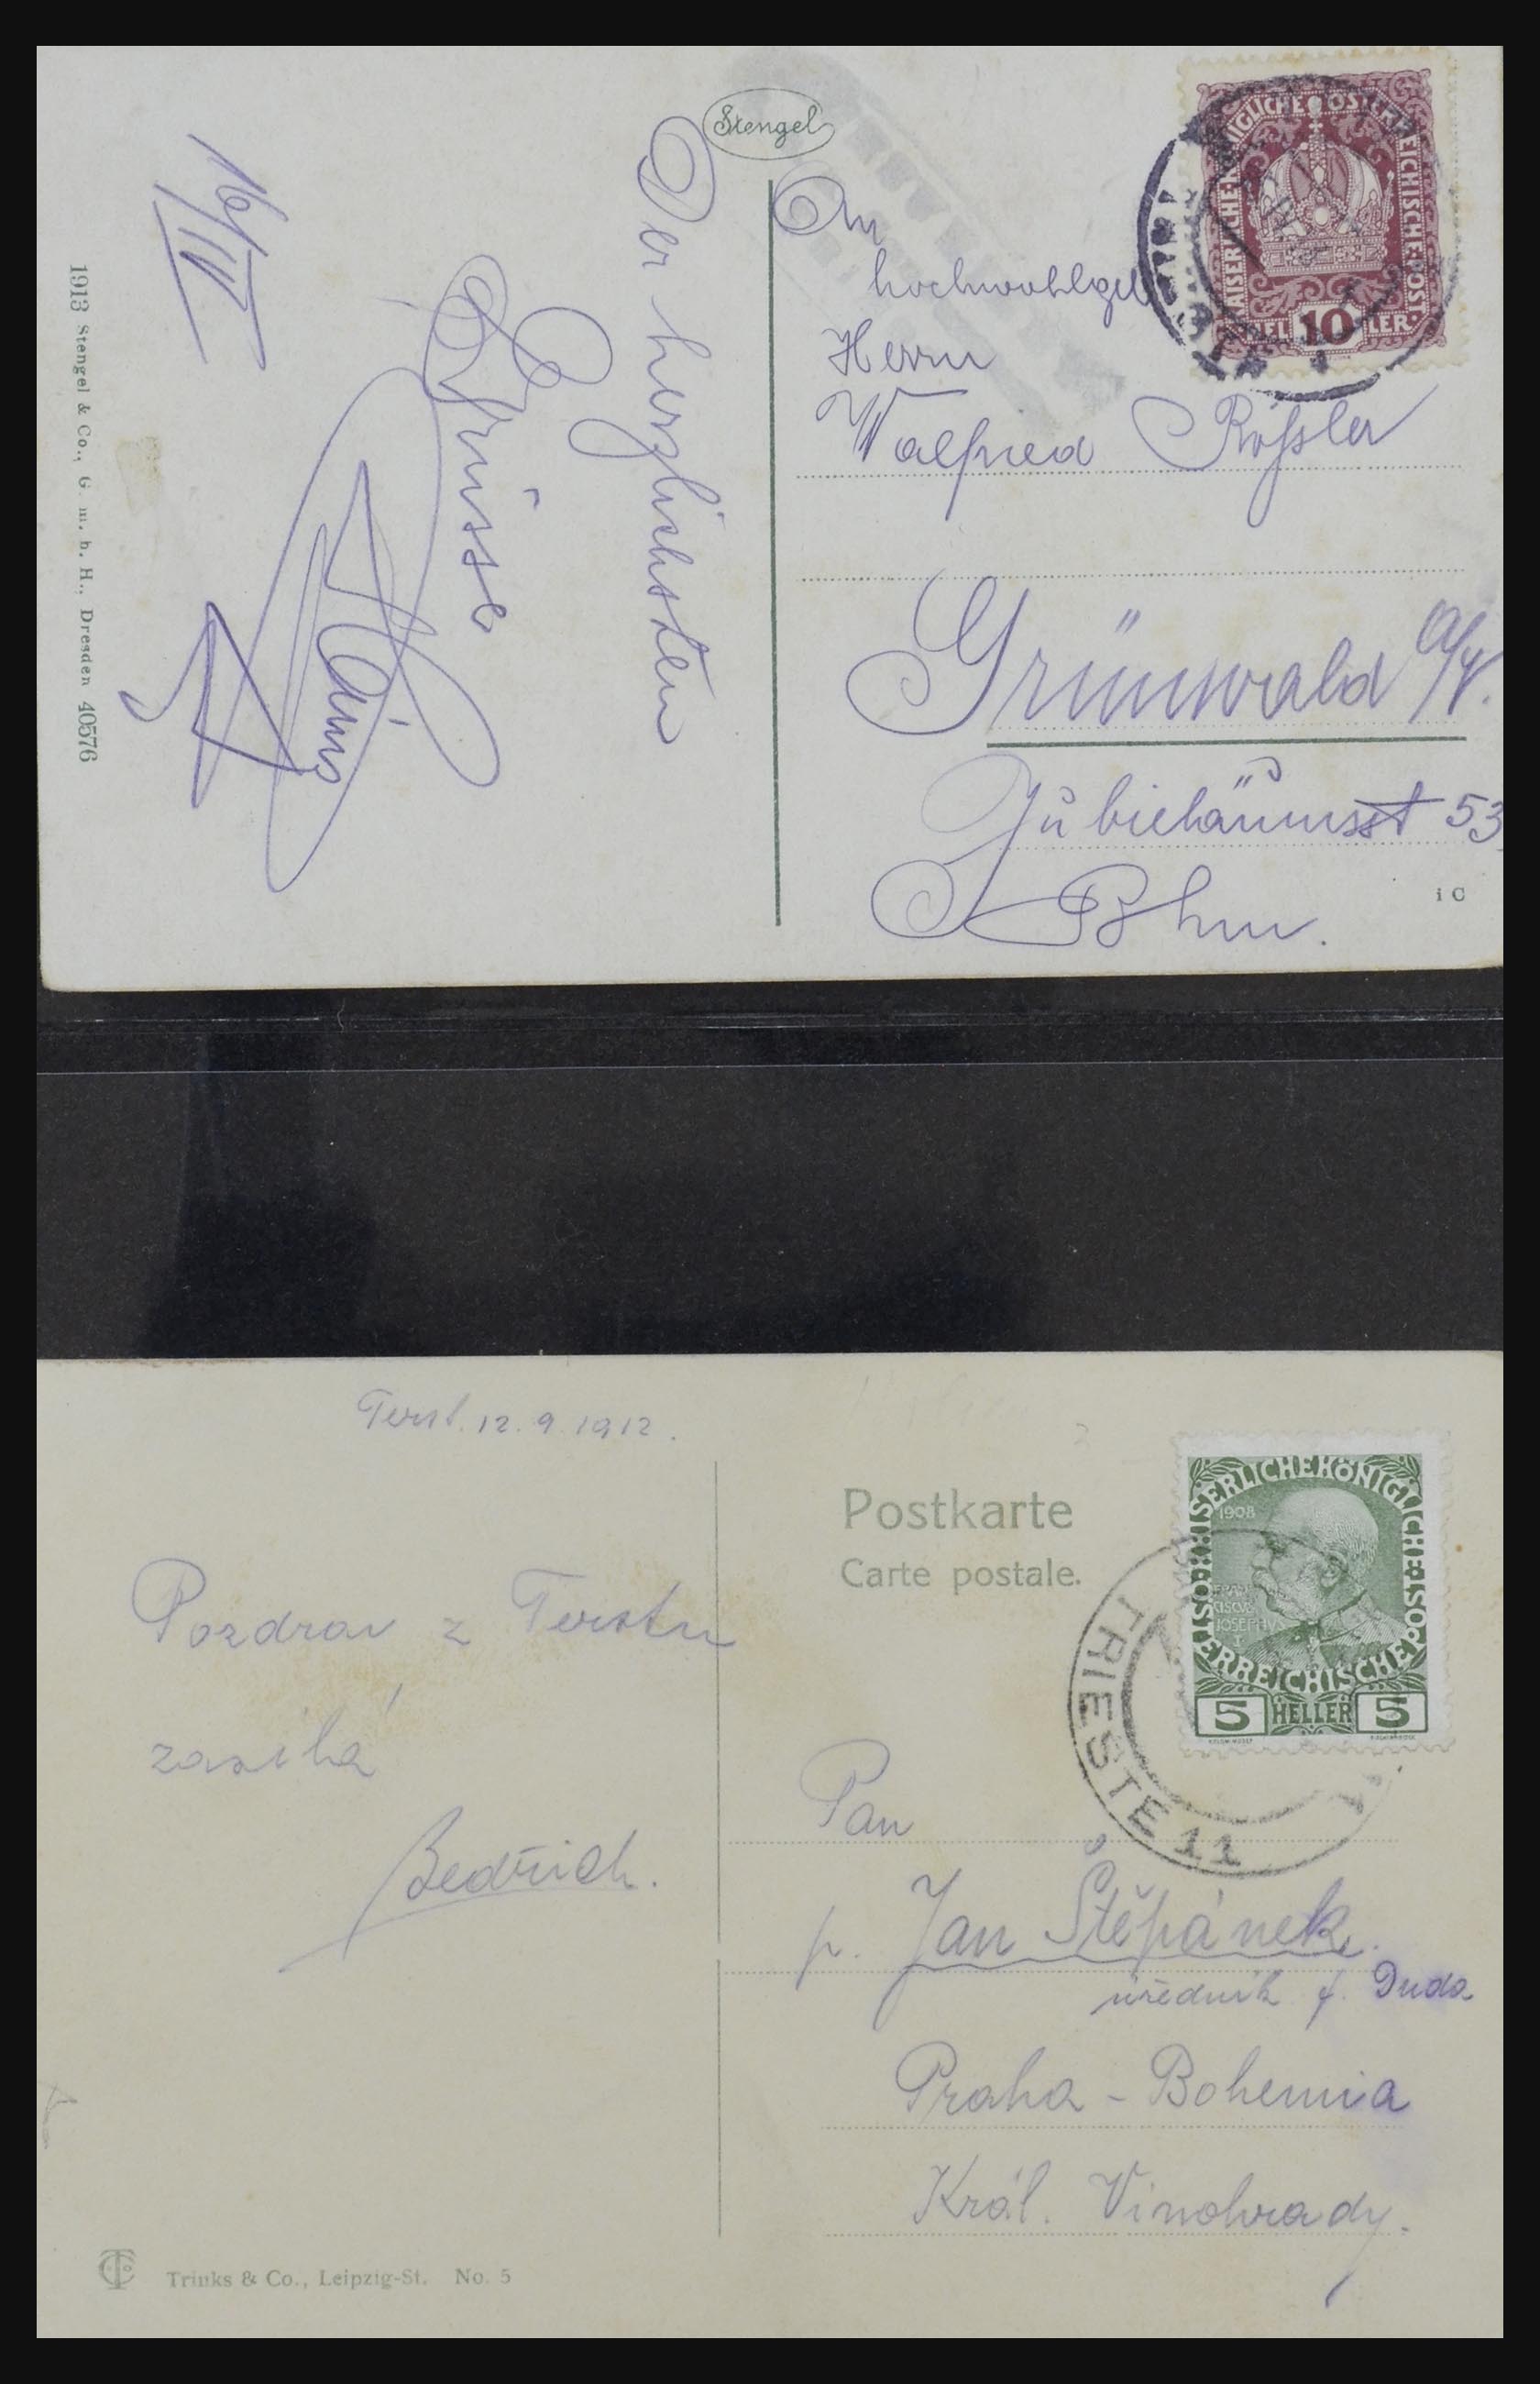 Stengel
Der herzlichsten
Grüsse
Hans
16/IV
1913 Stengel & Co., G. m. b. H., Dresden 40576
KAISERLICHE KÖNIGLICHE ÖSTERREICHISCHE POST
10
An
hochwohlgeb
Herrn
Walfried Rößler
Grünwald a/N.
Jubiläumsst 53
Böhm.
i C
Terst. 12. 9. 1912.
Pozdrav z Terstu
zasílá
Bedřich.
Postkarte
Carte postale.
KAISERLICHE KÖNIGLICHE ÖSTERREICHISCHE POST
1908
FRANCISCVS JOSEPHVS I
5 HELLER 5
TRIESTE 11
Pan
p. Jan Štěpánek
úředník f. Duda
Praha - Bohemia
Král. Vinohrady.
Trinks & Co., Leipzig-St. No. 5